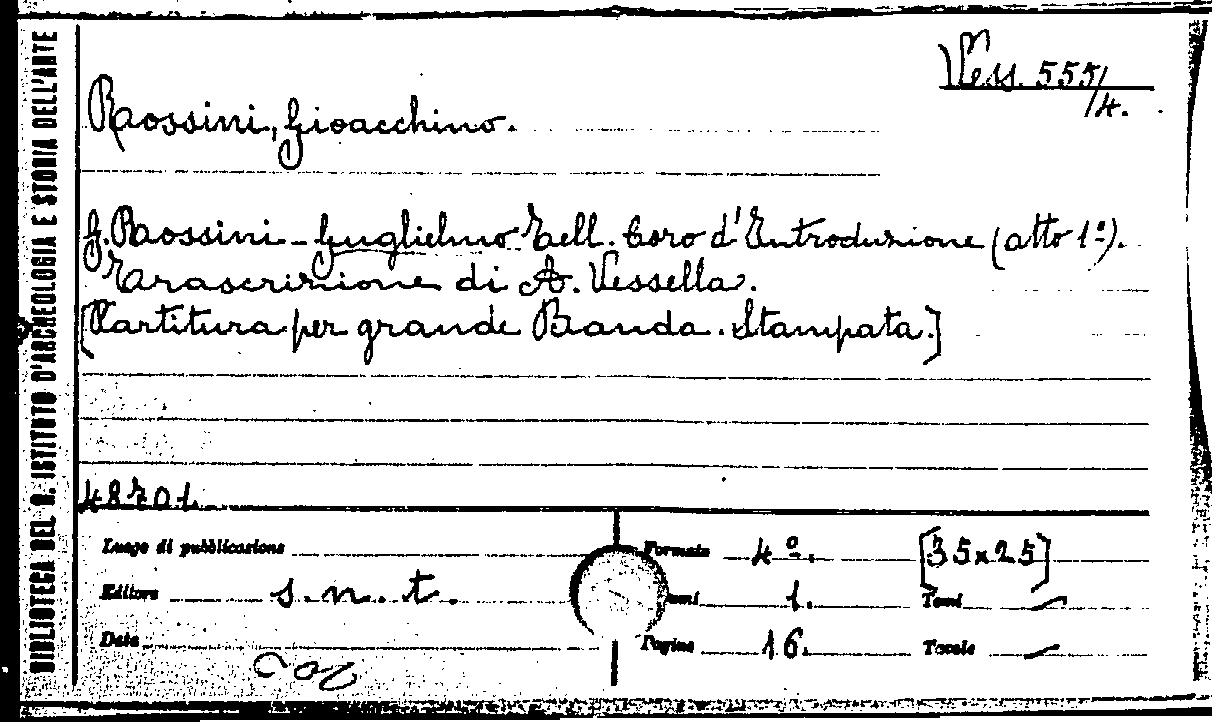 BIBLIOTECA DEL R. ISTITUTO D'ARCHEOLOGIA E STORIA DELL'ARTE
Vess. 555/4.
Rossini, Gioacchino.
G. Rossini - Guglielmo Tell. Coro d'Introduzione (atto 1º).
Trascrizione di A. Vessella.
[Partitura per grande Banda. Stampata.]
48701.
Luogo di pubblicazione
Formato 4º. [35x25]
Editore s.n.t.
1. Tomi —
Data
Pagine 16. Tavole —